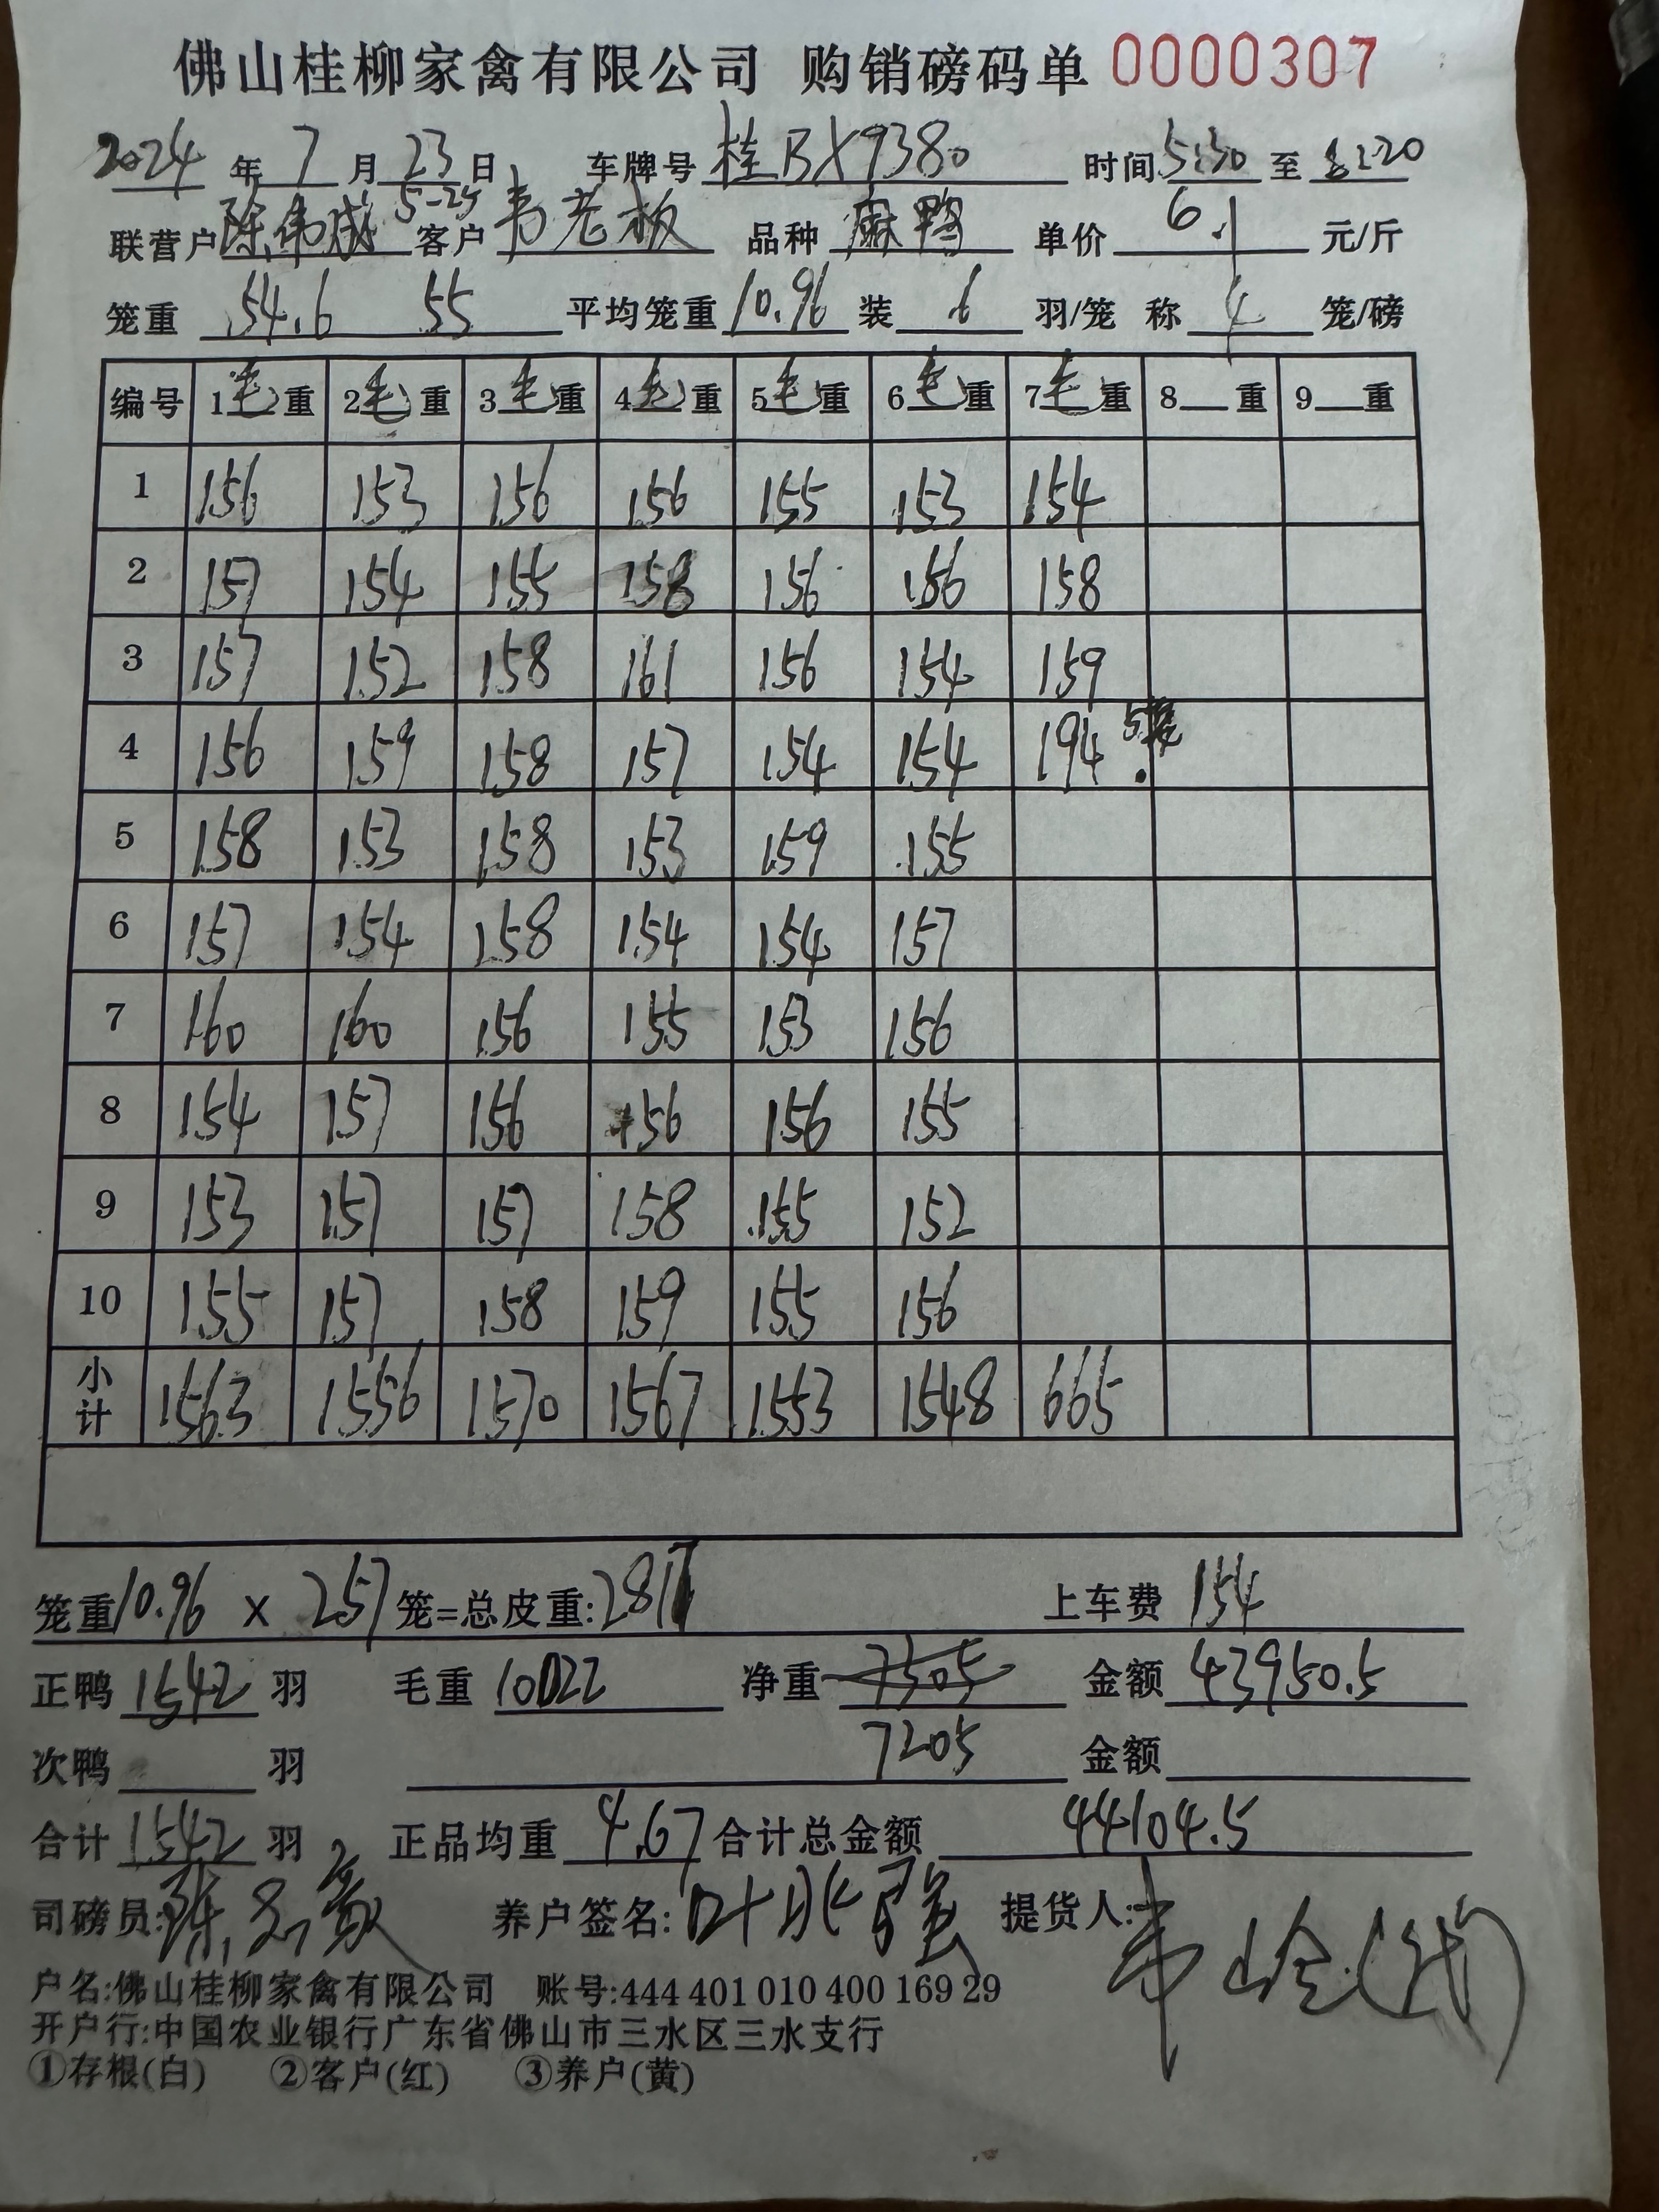 佛山桂柳家禽有限公司 购销磅码单 0000307
2024 年 7 月 23 日 车牌号 桂BX9380 时间 5:30 至 8:20
联营户 陈伟成 5-25 客户 韦老板 品种 麻鸭 单价 6.1 元/斤
笼重 54.6 55 平均笼重 10.96 装 6 羽/笼 称 4 笼/磅
编号 1毛重 2毛重 3毛重 4毛重 5毛重 6毛重 7毛重 8 重 9 重
1 156 153 156 156 155 153 154
2 157 154 155 158 156 156 158
3 157 152 158 161 156 154 159
4 156 159 158 157 154 154 194 5笼
5 158 153 158 153 159 155
6 157 154 158 154 154 157
7 160 160 156 155 153 156
8 154 157 156 156 156 155
9 153 157 157 158 155 152
10 155 157 158 159 155 156
小计 1563 1556 1570 1567 1553 1548 665
笼重 10.96 X 257 笼=总皮重: 2817 上车费 154
正鸭 1542 羽 毛重 10022 净重 7505 金额 43950.5
次鸭 羽 7205 金额
合计 1542 羽 正品均重 4.67 合计总金额 44104.5
司磅员: 陈 养户签名: 叶 强 提货人: 韦 (代)
户名:佛山桂柳家禽有限公司 账号:444 401 010 400 169 29
开户行:中国农业银行广东省佛山市三水区三水支行
①存根(白) ②客户(红) ③养户(黄)